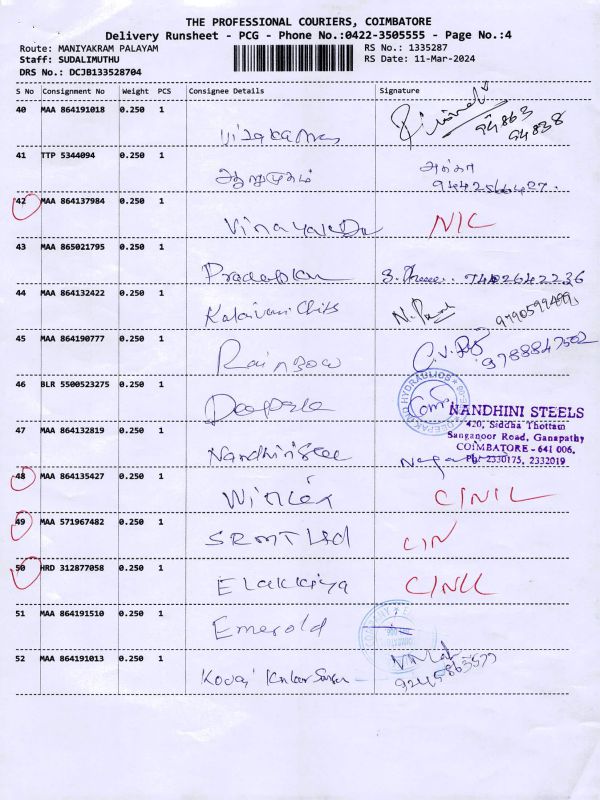 THE PROFESSIONAL COURIERS, COIMBATORE
Delivery Runsheet - PCG - Phone No.:0422-3505555 - Page No.:4
Route: MANIYAKRAM PALAYAM RS No.: 1335287
Staff: SUDALIMUTHU RS Date: 11-Mar-2024
DRS No.: DCJB133528704
S No Consignment No Weight PCS Consignee Details Signature
40 MAA 864191018 0.250 1
94863
94838
41 TTP 5344094 0.250 1 ஆறுமுகம்
42 MAA 864137984 0.250 1 NIC
43 MAA 865021795 0.250 1 7402642236
44 MAA 864132422 0.250 1 Kalaivani Chits
45 MAA 864190777 0.250 1 Rainbow 9788847502
46 BLR 5500523275 0.250 1
NANDHINI STEELS
420, Siddha Thottam
47 MAA 864132819 0.250 1 Sanganoor Road, Ganapathy
COIMBATORE - 641 006.
Ph: 2330175, 2332019
48 MAA 864135427 0.250 1
49 MAA 571967482 0.250 1
50 HRD 312877058 0.250 1 Elakkiya
51 MAA 864191510 0.250 1 Emerold
52 MAA 864191013 0.250 1 Kovai